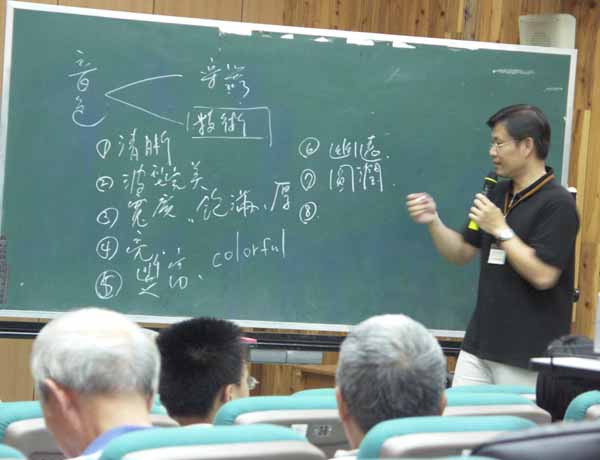 音色
音
技術
① 清晰
② 美
③ 寬廣、飽滿、厚
④ 亮
⑤ 豐富、colorful
⑥ 幽遠
⑦ 圓潤
⑧